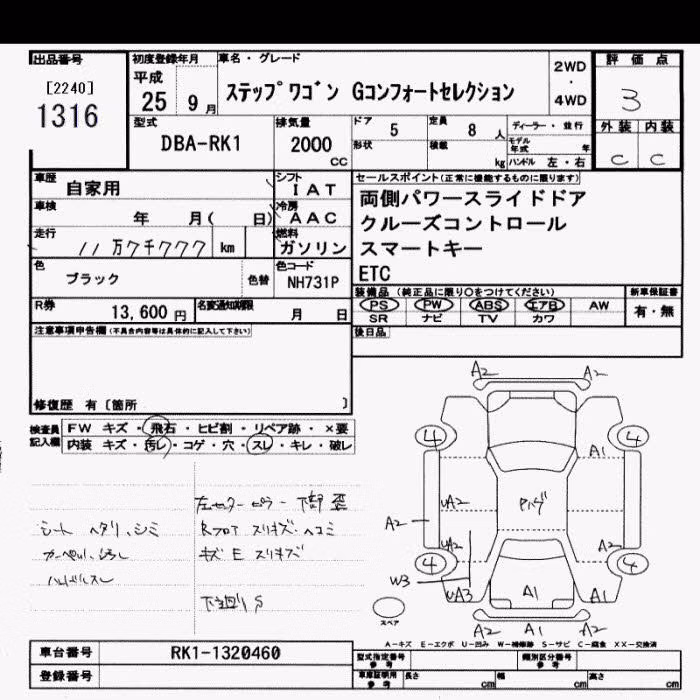 出品番号
[2240]
1316
初度登録年月
平成
25 9月
車名・グレード
ステップワゴン Gコンフォートセレクション
2WD
・
4WD
評価点
3
外装 内装
C C
型式
DBA-RK1
排気量
2000
CC
ドア 5
形状
定員 8人
積載 kg
ディーラー・並行
モデル年式 年
ハンドル 左・右
車歴
自家用
シフト
IAT
車検
年 月( 日)
冷房
AAC
走行
11万7千777 km
燃料
ガソリン
色
ブラック
色替
色コード
NH731P
R券
13,600円
名変通知期限
月 日
セールスポイント(正常に機能するものに限ります)
両側パワースライドドア
クルーズコントロール
スマートキー
ETC
装備品(純正品に限り○をつけてください)
PS PW ABS エアB AW
SR ナビ TV カワ
新車保証書
有・無
後日品
注意事項申告欄(不具合内容等は具体的に記入して下さい)
修復歴 有〔箇所 〕
検査員記入欄
FW キズ・飛石・ヒビ割・リペア跡・×要
内装 キズ・汚レ・コゲ・穴・スレ・キレ・破レ
シート ヘタリ、シミ
ハンドルスレ
左センターピラー下部 歪
Rフロア スリキズ・ヘコミ
キズ E スリキズ
下廻り S
A2 A2
4 4
A1
UA2
Pハゲ
A2
UA2
A2
4 4
W3
UA3
A1
A1
スペア
A2 A1 A2
A−キズ E−エクボ U−凹み W−補修跡 S−サビ C−腐食 XX−交換済
車台番号
RK1-1320460
登録番号
型式指定番号 参考
類別区分番号 参考
車庫証明用 参考
長さ cm
幅 cm
高さ cm